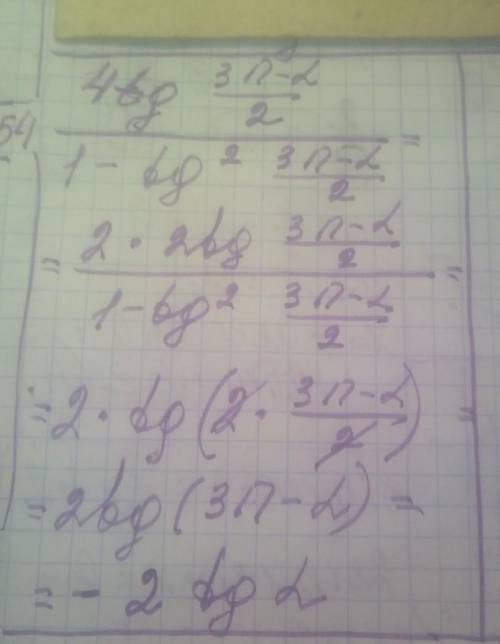 54
4tg (3π-α)/2
/ (1 - tg² (3π-α)/2) =
= (2 · 2tg (3π-α)/2) / (1 - tg² (3π-α)/2) =
= 2 · tg (2 · (3π-α)/2) =
= 2tg (3π - α) =
= - 2 tg α